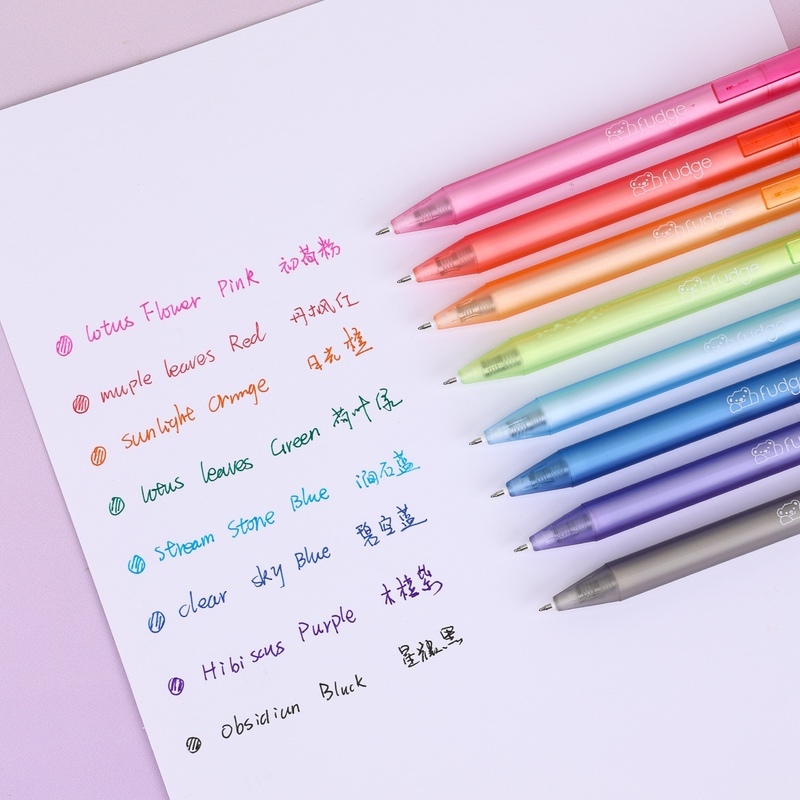 lotus Flower Pink 初荷粉
muple leaves Red 丹枫红
sunlight Ormnge 日光橙
lotus leaves Green 荷叶绿
stream Stone Blue 涧石蓝
clear sky Blue 碧空蓝
Hibiscus Purple 木槿紫
Obsidiun Bluck 星辰黑
fudge
fudge
fudge
fudge
fudge
fudge
fudge